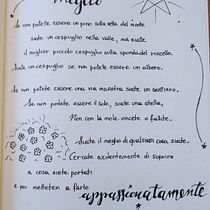 meglio
Se non potete essere un pino sulla vetta del monte
siate un cespuglio nella valle, ma siate
il miglior piccolo cespuglio sulla sponda del ruscello.
Siate un cespuglio se non potete essere un albero.
Se non potete essere una via maestra siate un sentiero.
Se non potete essere il sole, siate una stella,
Non con la mole vincete o fallite.
Siate il meglio di qualsiasi cosa siate.
Cercate ardentemente di scoprire
a cosa siete portati
e poi mettetevi a farlo
appassionatamente